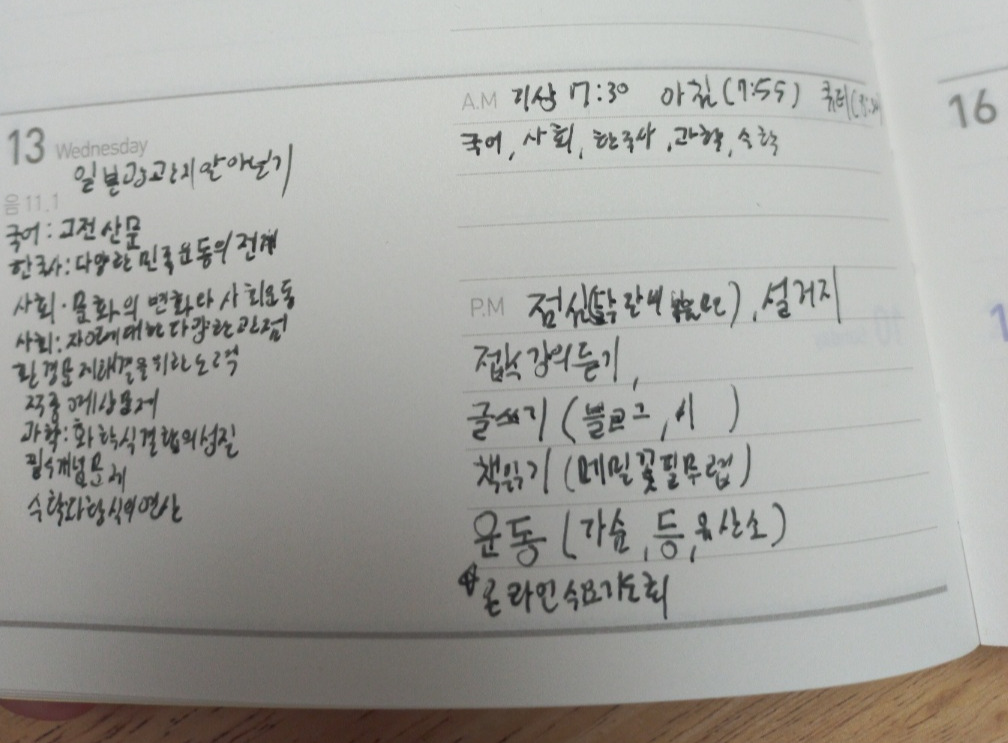 13 Wednesday
음 11.1
일본 알아보기
국어: 고전산문
한국사: 다양한 민족운동의 전개
사회·문화의 변화와 사회운동
사회: 자연에 대한 다양한 관점
환경문제해결을 위한 노력
적중예상문제
과학: 화학식결합의성질
필수개념문제
수학다항식의연산
A.M 기상 17:30 아침(7:55) 큐티
국어, 사회, 한국사, 과학, 수학
P.M 점심, 설거지
접속 강의듣기,
글쓰기 (블로그, 시 )
책읽기 (메밀꽃필무렵)
운동 (가슴, 등, 유산소)
온라인수요기도회
16